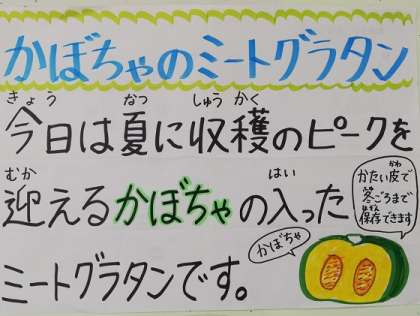 かぼちゃのミートグラタン
きょう なつ しゅうかく
今日は夏に収穫のピークを
むか はい
迎えるかぼちゃの入った
ミートグラタンです。
かぼちゃ
かわ
かたい皮で
冬ごろまで
ほぞん
保存できます